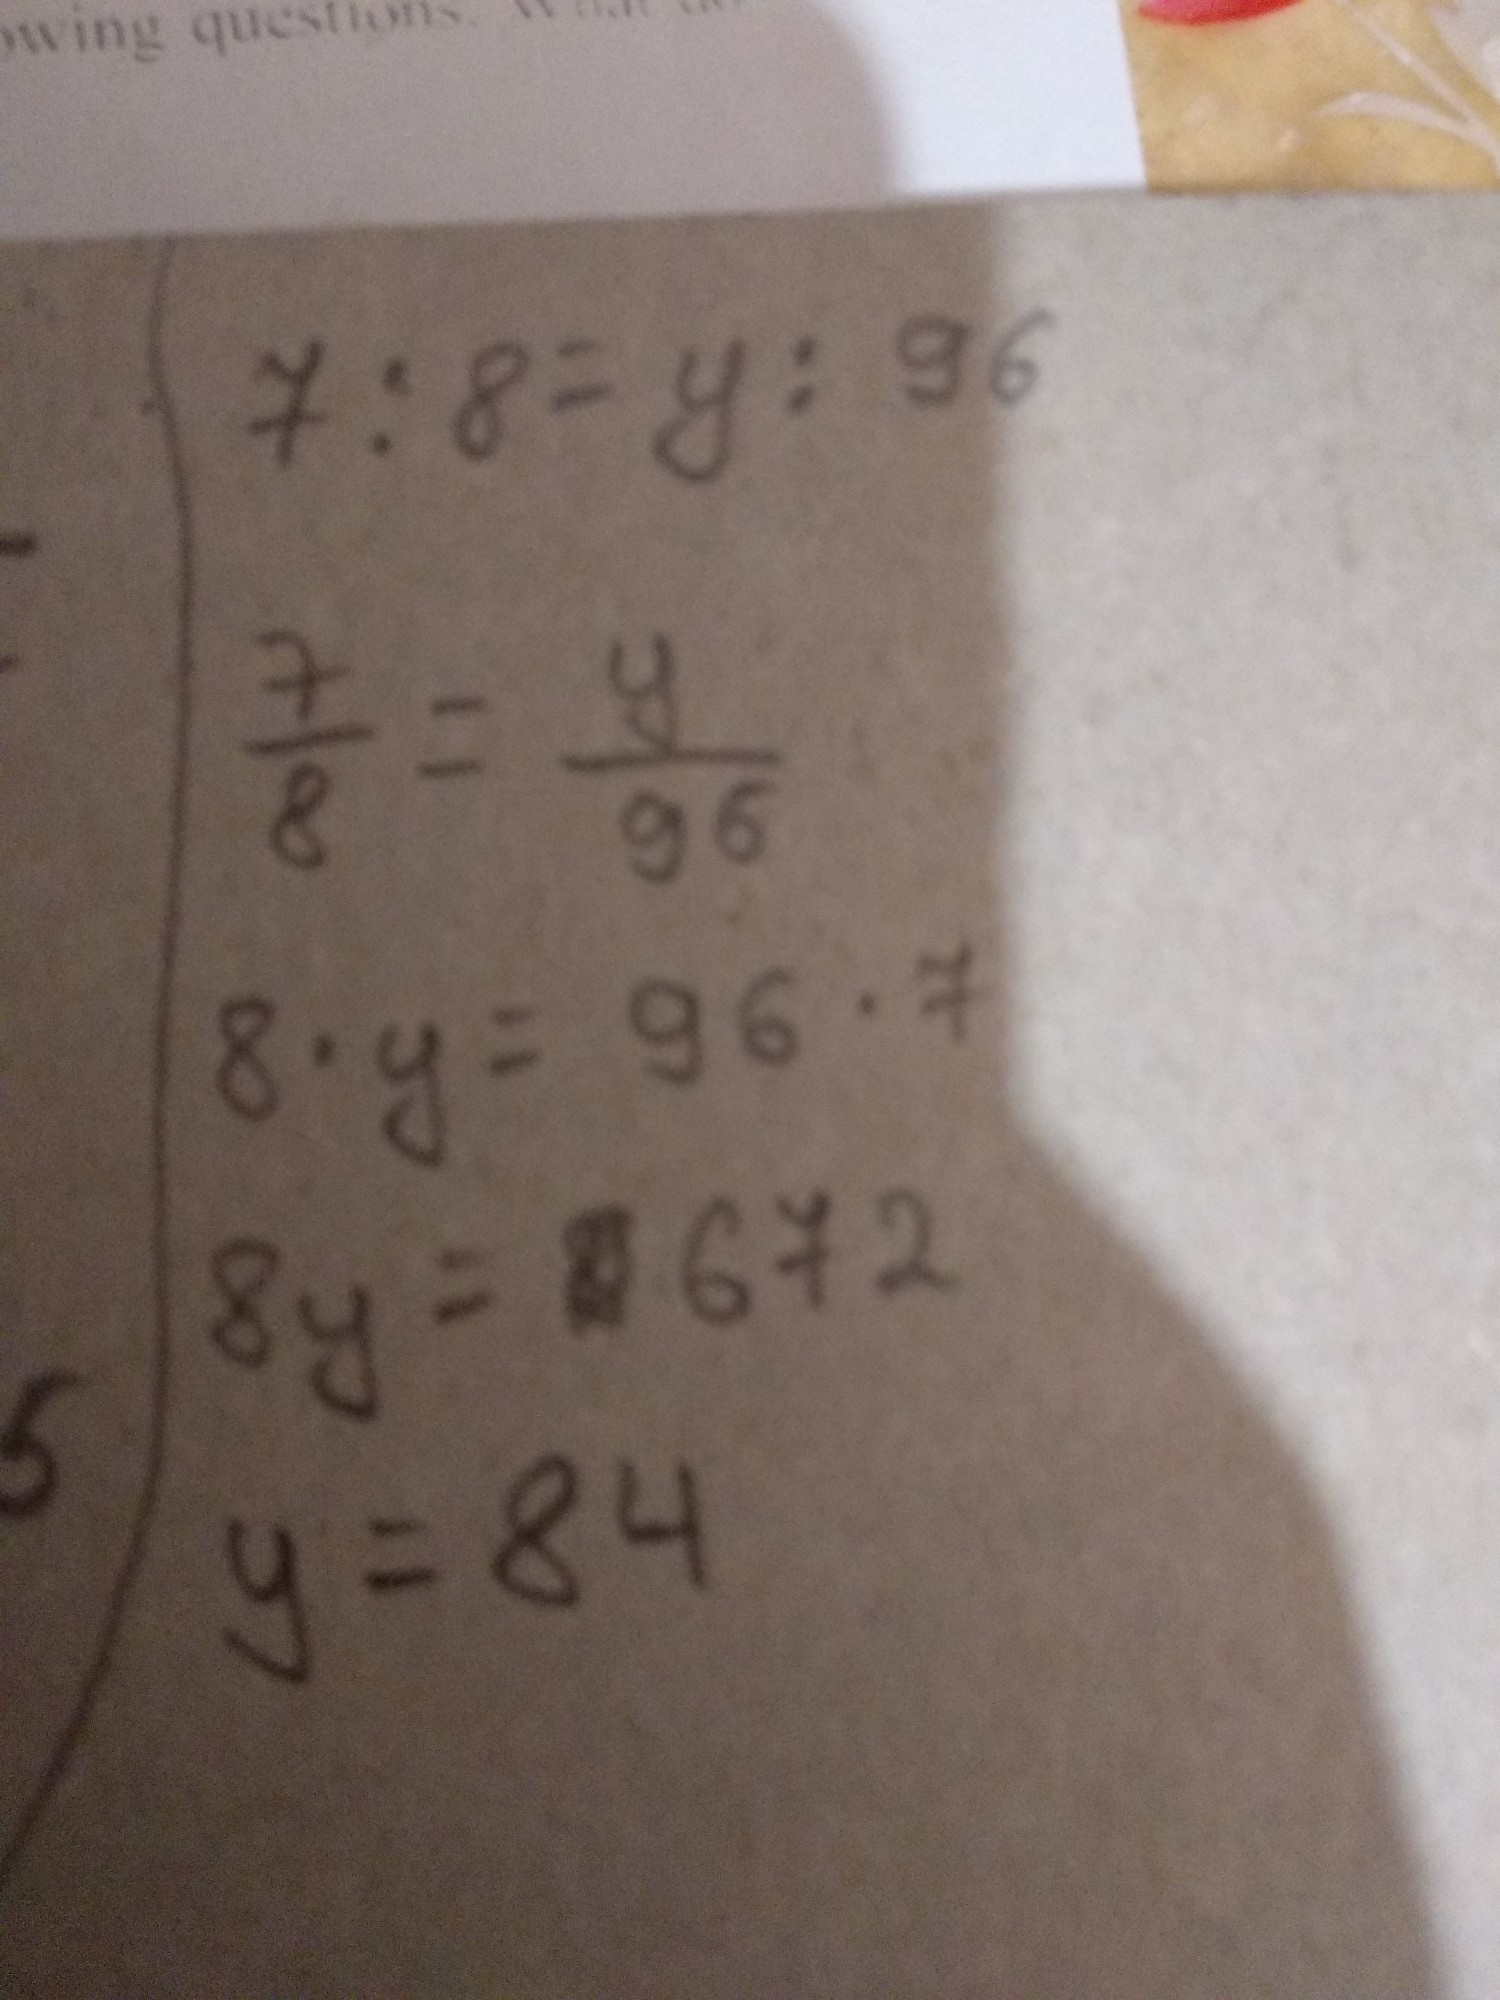 owing questions. What do
7 : 8 = y : 96
7/8 = y/96
8 · y = 96 · 7
8y = 672
5
y = 84